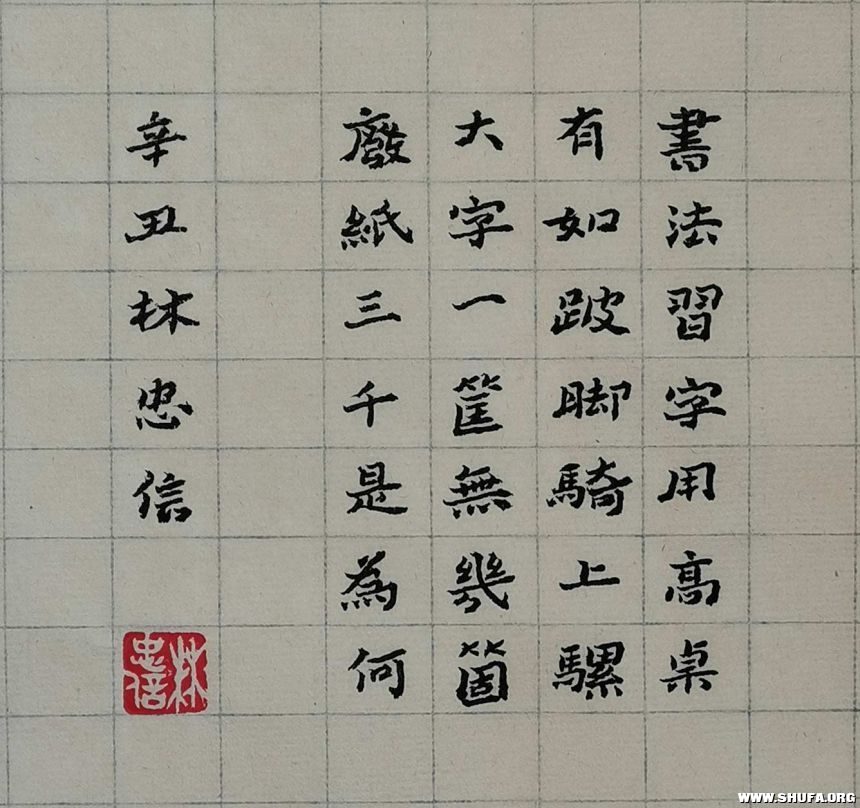 書法習字用高桌
有如跛脚騎上騾
大字一筐無幾箇
廢紙三千是為何
辛丑林忠信
林忠信
WWW.SHUFA.ORG